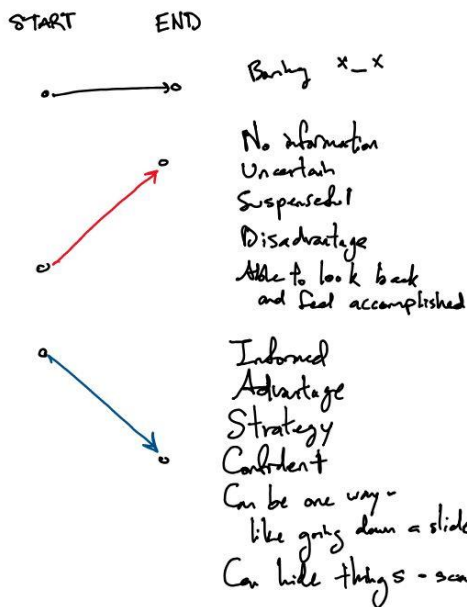 START END
Boring x_x
No information
Uncertain
Suspenseful
Disadvantage
Able to look back
and feel accomplished
Informed
Advantage
Strategy
Confident
Can be one way -
like going down a slide
Can hide things -